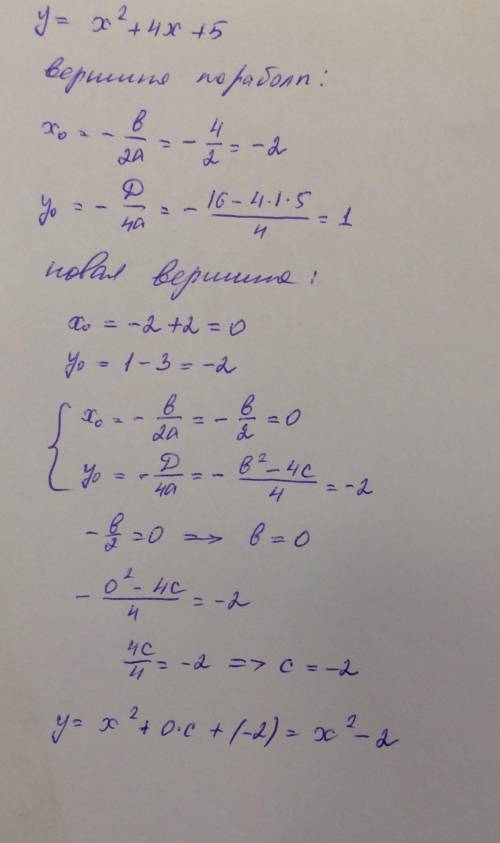 y = x² + 4x + 5
вершина параболы:
x₀ = - в/2a = - 4/2 = -2
y₀ = - D/4a = - (16 - 4·1·5)/4 = 1
новая вершина:
x₀ = -2 + 2 = 0
y₀ = 1 - 3 = -2
{ x₀ = - в/2a = - в/2 = 0
y₀ = - D/4a = - (в² - 4c)/4 = -2
- в/2 = 0 => в = 0
- (0² - 4c)/4 = -2
4c/4 = -2 => c = -2
y = x² + 0·c + (-2) = x² - 2